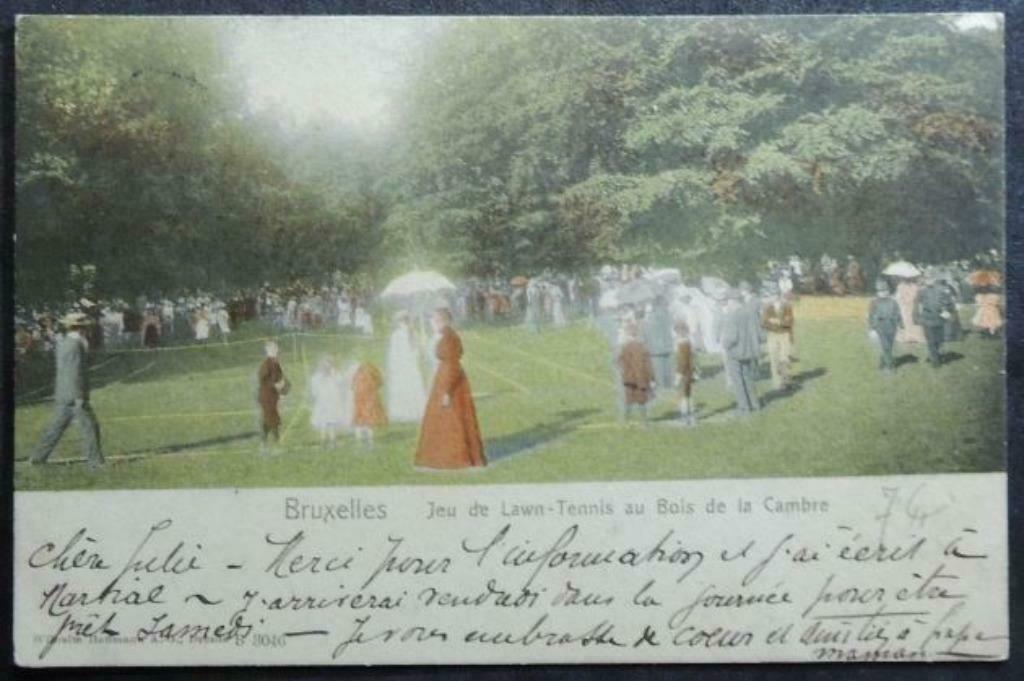 Bruxelles Jeu de Lawn-Tennis au Bois de la Cambre
74
Chère Julie - Merci pour l'information et j'ai écrit à
Martial ~ J'arriverai vendredi dans la journée pour être
prêt Samedi — Je vous embrasse de coeur et amitiés à papa
maman
S 3046